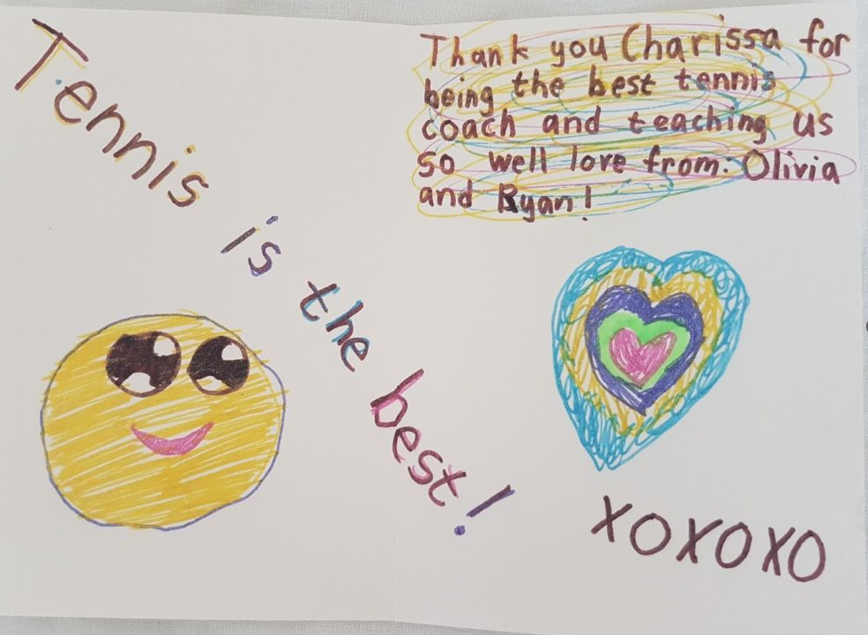 Tennis is the best!
Thank you Charissa for
being the best tennis
coach and teaching us
so well love from: Olivia
and Ryan!
XOXOXO